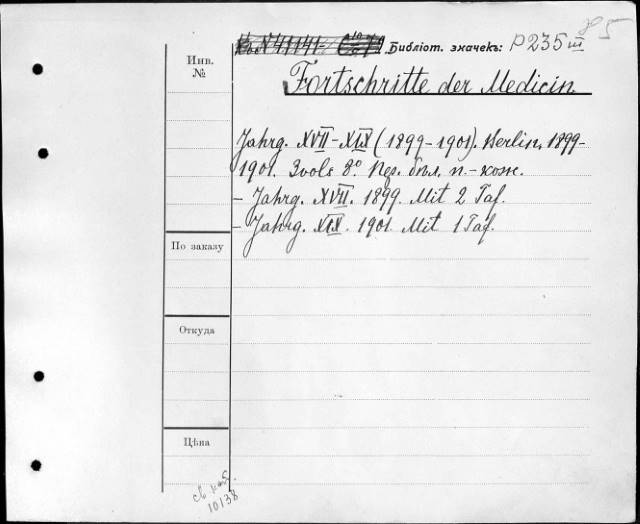 № 41141 Библіот. значекъ: P 235 III
Инв.
№
Fortschritte der Medicin
Jahrg. XVII-XIX (1899-1901). Berlin, 1899-
1901. 3 vols 8º. Пер. бум., п.-кож.
- Jahrg. XVII. 1899. Mit 2 Taf.
- Jahrg. XIX. 1901. Mit 1 Taf.
По заказу
Откуда
Цѣна
10138